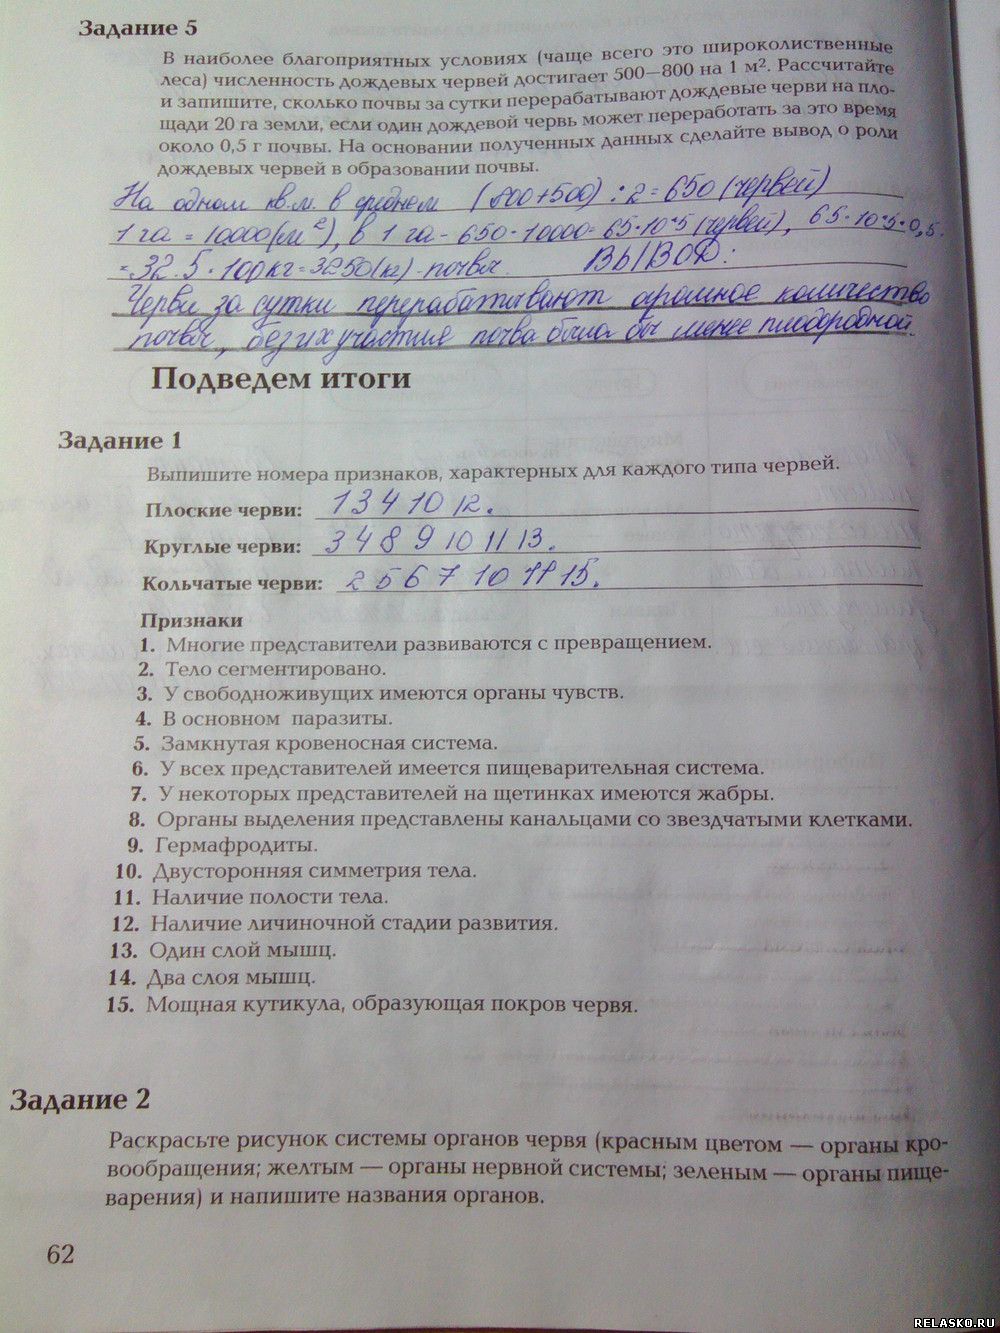 Задание 5
В наиболее благоприятных условиях (чаще всего это широколиственные
леса) численность дождевых червей достигает 500—800 на 1 м². Рассчитайте
и запишите, сколько почвы за сутки перерабатывают дождевые черви на пло-
щади 20 га земли, если один дождевой червь может переработать за это время
около 0,5 г почвы. На основании полученных данных сделайте вывод о роли
дождевых червей в образовании почвы.
На одном кв.м. в среднем (800+500):2=650 (червей)
1 га = 10000(м²), в 1 га - 650·10000=65·10^5 (червей), 65·10^5·0,5.
=32.5·100кг=3250(кг)-почвы. ВЫВОД:
Черви за сутки перерабатывают огромное количество
почвы, без их участия почва была бы менее плодородной.
Подведем итоги
Задание 1
Выпишите номера признаков, характерных для каждого типа червей.
Плоские черви: 1 3 4 10 12.
Круглые черви: 3 4 8 9 10 11 13.
Кольчатые черви: 2 5 6 7 10 11 15.
Признаки
1. Многие представители развиваются с превращением.
2. Тело сегментировано.
3. У свободноживущих имеются органы чувств.
4. В основном паразиты.
5. Замкнутая кровеносная система.
6. У всех представителей имеется пищеварительная система.
7. У некоторых представителей на щетинках имеются жабры.
8. Органы выделения представлены канальцами со звездчатыми клетками.
9. Гермафродиты.
10. Двусторонняя симметрия тела.
11. Наличие полости тела.
12. Наличие личиночной стадии развития.
13. Один слой мышц.
14. Два слоя мышц.
15. Мощная кутикула, образующая покров червя.
Задание 2
Раскрасьте рисунок системы органов червя (красным цветом — органы кро-
вообращения; желтым — органы нервной системы; зеленым — органы пище-
варения) и напишите названия органов.
62
RELASKO.RU